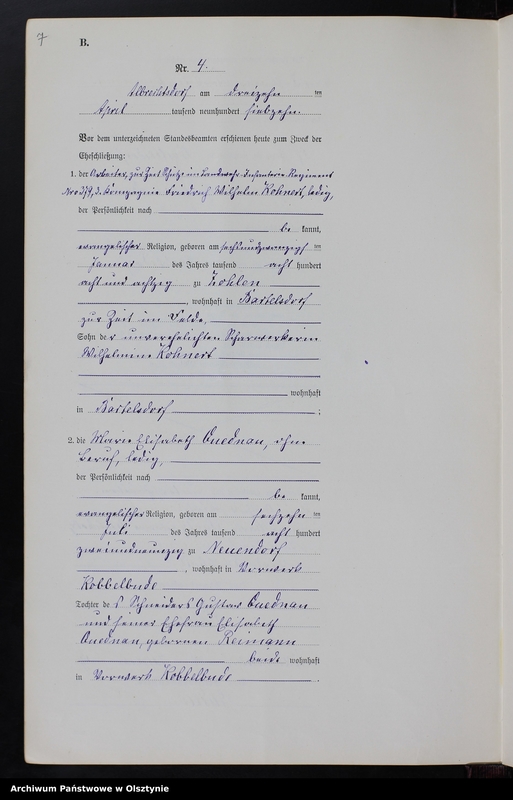 7
B.
Nr. 4.
Albrechtsdorf am dreizehn ten
April tausend neunhundert siebzehn.
Vor dem unterzeichneten Standesbeamten erschienen heute zum Zweck der
Eheschließung:
1. der Arbeiter, zur Zeit Schütze im Landwehr-Infanterie-Regiment
Nro 379, 3. Kompagnie Friedrich Wilhelm Kohnert, ledig,
der Persönlichkeit nach
be kannt,
evangelischer Religion, geboren am sechsundzwanzigsten
Januar des Jahres tausend acht hundert
acht und achtzig zu Zohlen
, wohnhaft in Bartelsdorf
zur Zeit im Felde,
Sohn der unverehelichten Scharwerkerin
Wilhelmine Kohnert
wohnhaft
in Bartelsdorf ;
2. die Marie Elisabeth Quednau, ohne
Beruf, ledig,
der Persönlichkeit nach
be kannt,
evangelischer Religion, geboren am sechzehn ten
Juli des Jahres tausend acht hundert
zweiundneunzig zu Neuendorf
, wohnhaft in Vorwerk
Kobbelbude
Tochter des Schneiders Gustav Quednau
und seiner Ehefrau Elisabeth
Quednau, geborenen Reimann
beide wohnhaft
in Vorwerk Kobbelbude .
Archiwum Państwowe w Olsztynie